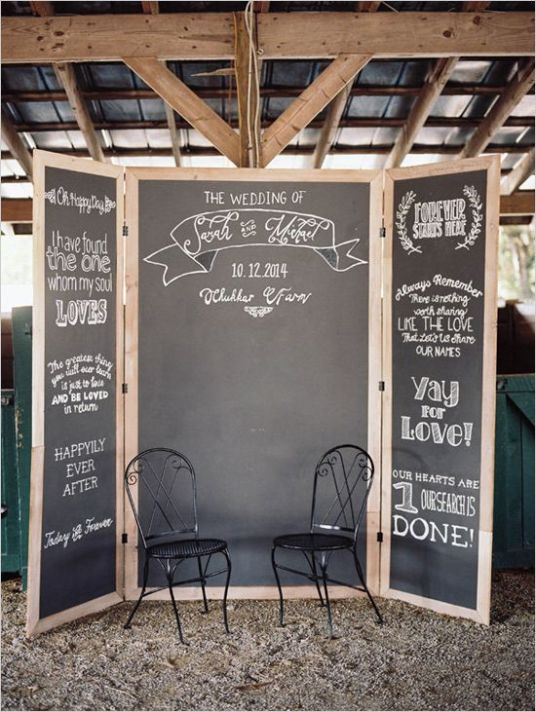 Oh Happy Day
I have found
the one
whom my soul
LOVES
The greatest thing
you will ever learn
is just to love
AND BE LOVED
in return
HAPPILY
EVER
AFTER
Today & Forever
THE WEDDING OF
Sarah AND Michael
10.12.2014
Chukkar Farm
FOREVER
STARTS HERE
Always Remember
There is nothing
worth sharing
LIKE THE LOVE
That Let's Us Share
OUR NAMES
Yay
FOR
Love!
OUR HEARTS ARE
1 OUR SEARCH IS
DONE!